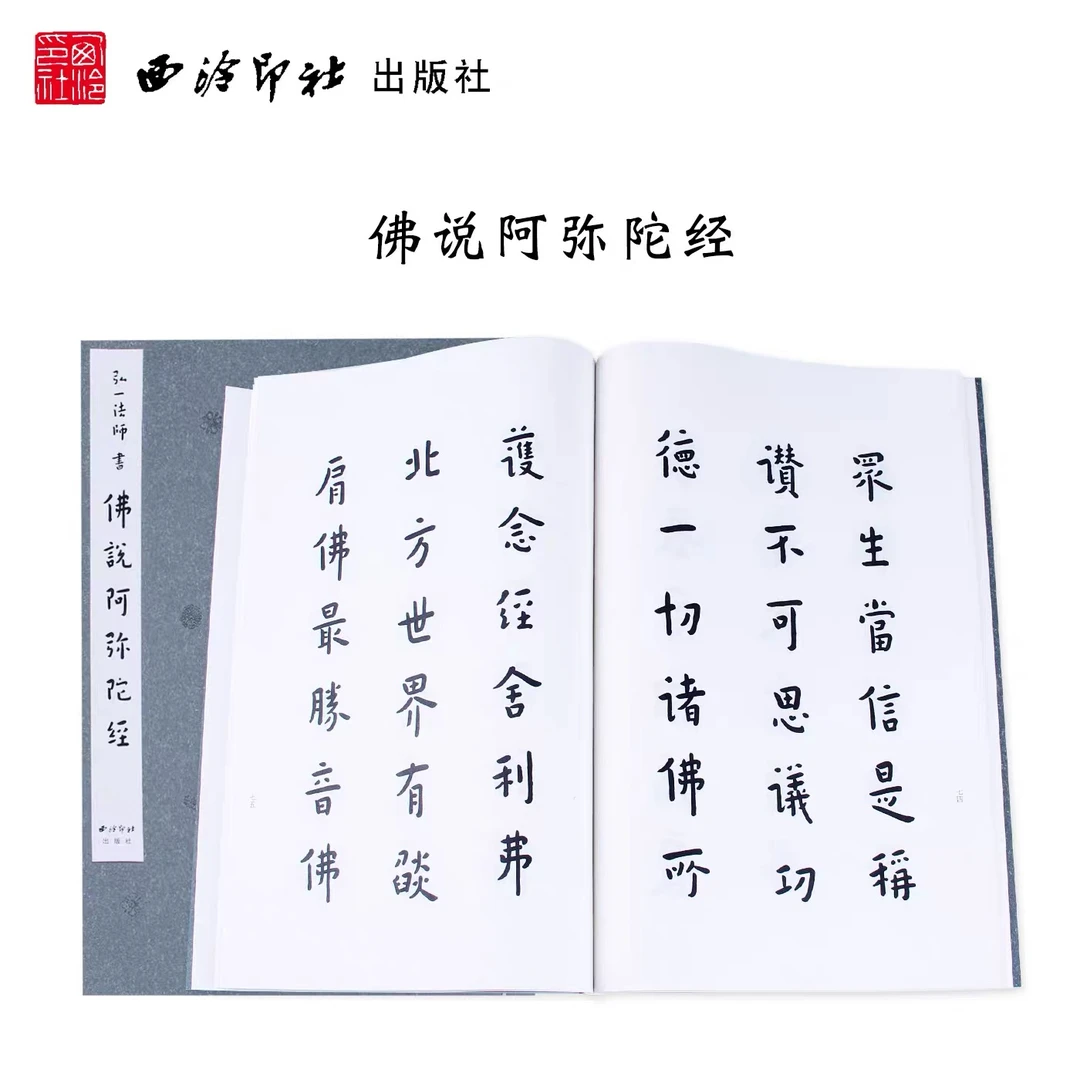 西泠印社
西泠印社 出版社
佛说阿弥陀经
弘一法師書 佛說阿弥陀經
西泠印社
出版社
眾生當信是稱
讚不可思議功
德一切諸佛所
七四
護念經舍利弗
北方世界有燄
肩佛最勝音佛
七五